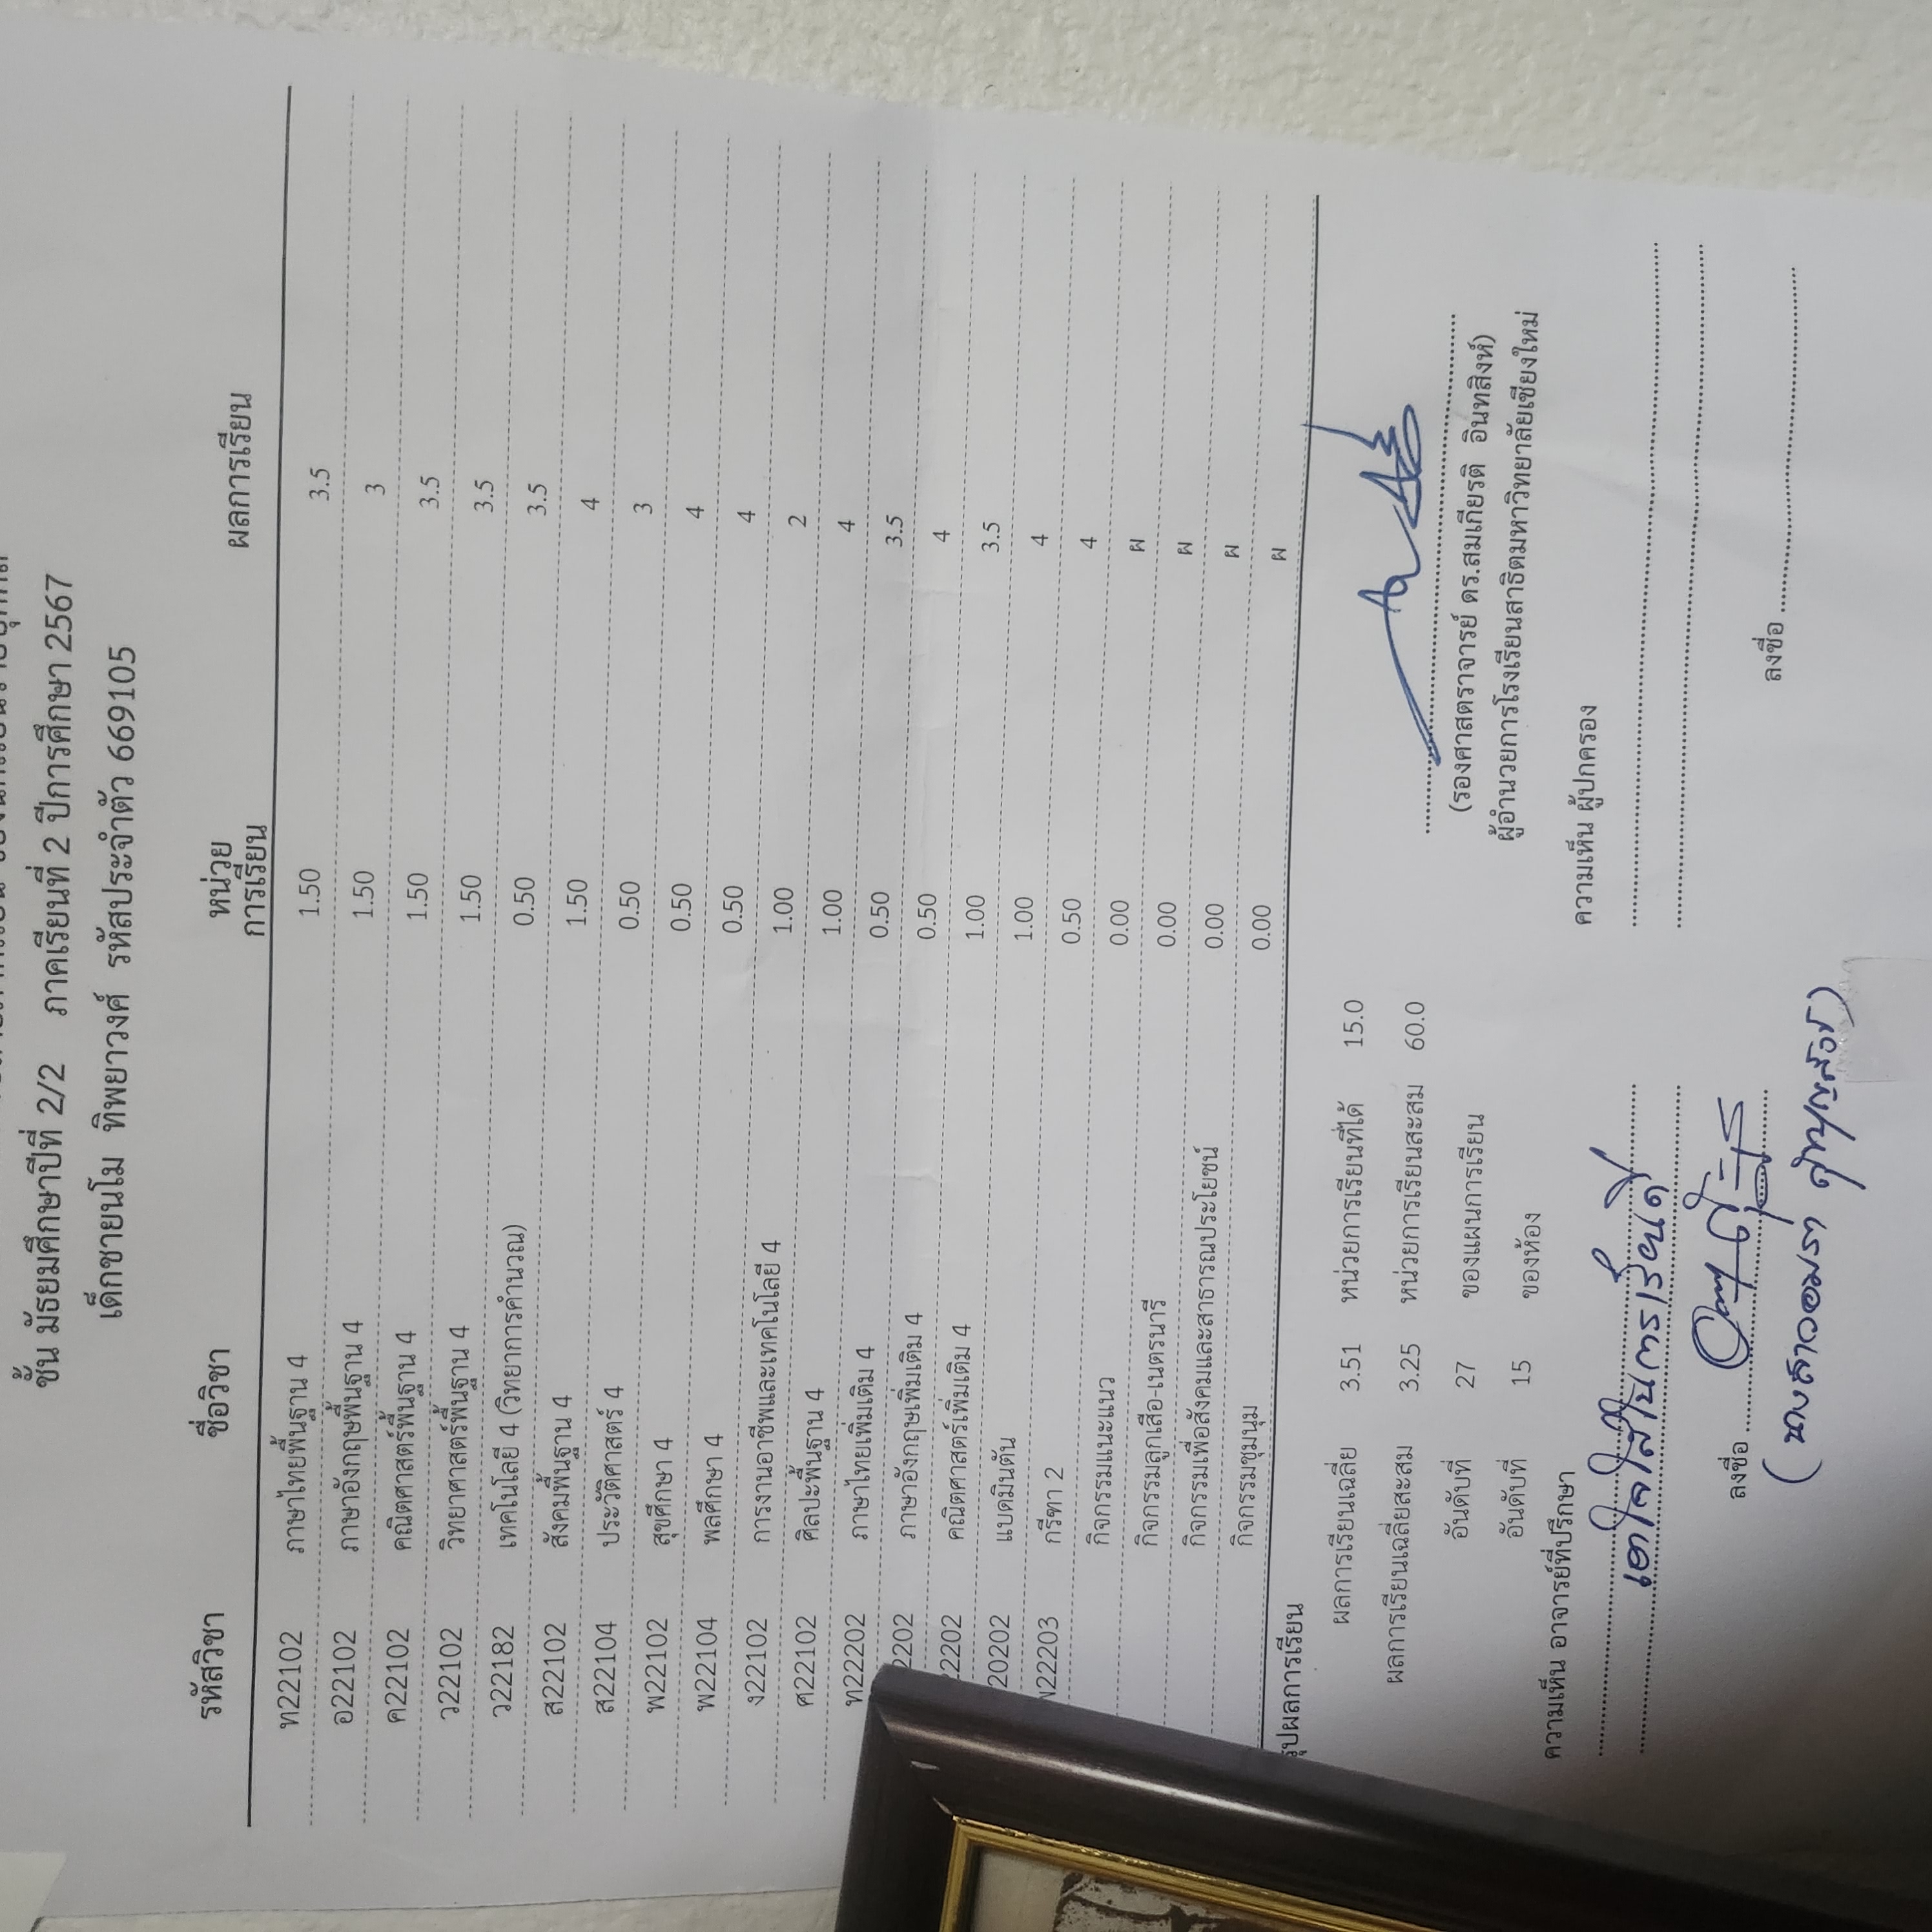 ชั้น มัธยมศึกษาปีที่ 2/2 ภาคเรียนที่ 2 ปีการศึกษา 2567
เด็กชายนโม ทิพยาวงศ์ รหัสประจำตัว 669105
รหัสวิชา ชื่อวิชา หน่วยการเรียน ผลการเรียน
ท22102 ภาษาไทยพื้นฐาน 4 1.50 3.5
อ22102 ภาษาอังกฤษพื้นฐาน 4 1.50 3
ค22102 คณิตศาสตร์พื้นฐาน 4 1.50 3.5
ว22102 วิทยาศาสตร์พื้นฐาน 4 1.50 3.5
ว22182 เทคโนโลยี 4 (วิทยาการคำนวณ) 0.50 3.5
ส22102 สังคมพื้นฐาน 4 1.50 4
ส22104 ประวัติศาสตร์ 4 0.50 3
พ22102 สุขศึกษา 4 0.50 4
พ22104 พลศึกษา 4 0.50 4
ง22102 การงานอาชีพและเทคโนโลยี 4 1.00 2
ศ22102 ศิลปะพื้นฐาน 4 1.00 4
ท22202 ภาษาไทยเพิ่มเติม 4 0.50 3.5
2202 ภาษาอังกฤษเพิ่มเติม 4 0.50 4
22202 คณิตศาสตร์เพิ่มเติม 4 1.00 3.5
20202 แบดมินตัน 1.00 4
22203 กรีฑา 2 0.50 4
กิจกรรมแนะแนว 0.00 ผ
กิจกรรมลูกเสือ-เนตรนารี 0.00 ผ
กิจกรรมเพื่อสังคมและสาธารณประโยชน์ 0.00 ผ
กิจกรรมชุมนุม 0.00 ผ
รุปผลการเรียน
ผลการเรียนเฉลี่ย 3.51 หน่วยการเรียนที่ได้ 15.0
ผลการเรียนเฉลี่ยสะสม 3.25 หน่วยการเรียนสะสม 60.0
อันดับที่ 27 ของแผนการเรียน
อันดับที่ 15 ของห้อง
(รองศาสตราจารย์ ดร.สมเกียรติ อินทสิงห์)
ผู้อำนวยการโรงเรียนสาธิตมหาวิทยาลัยเชียงใหม่
ความเห็น อาจารย์ที่ปรึกษา
เอาใจใส่ในการเรียนดี
ลงชื่อ
(นางสาวอมรา
ความเห็น ผู้ปกครอง
ลงชื่อ